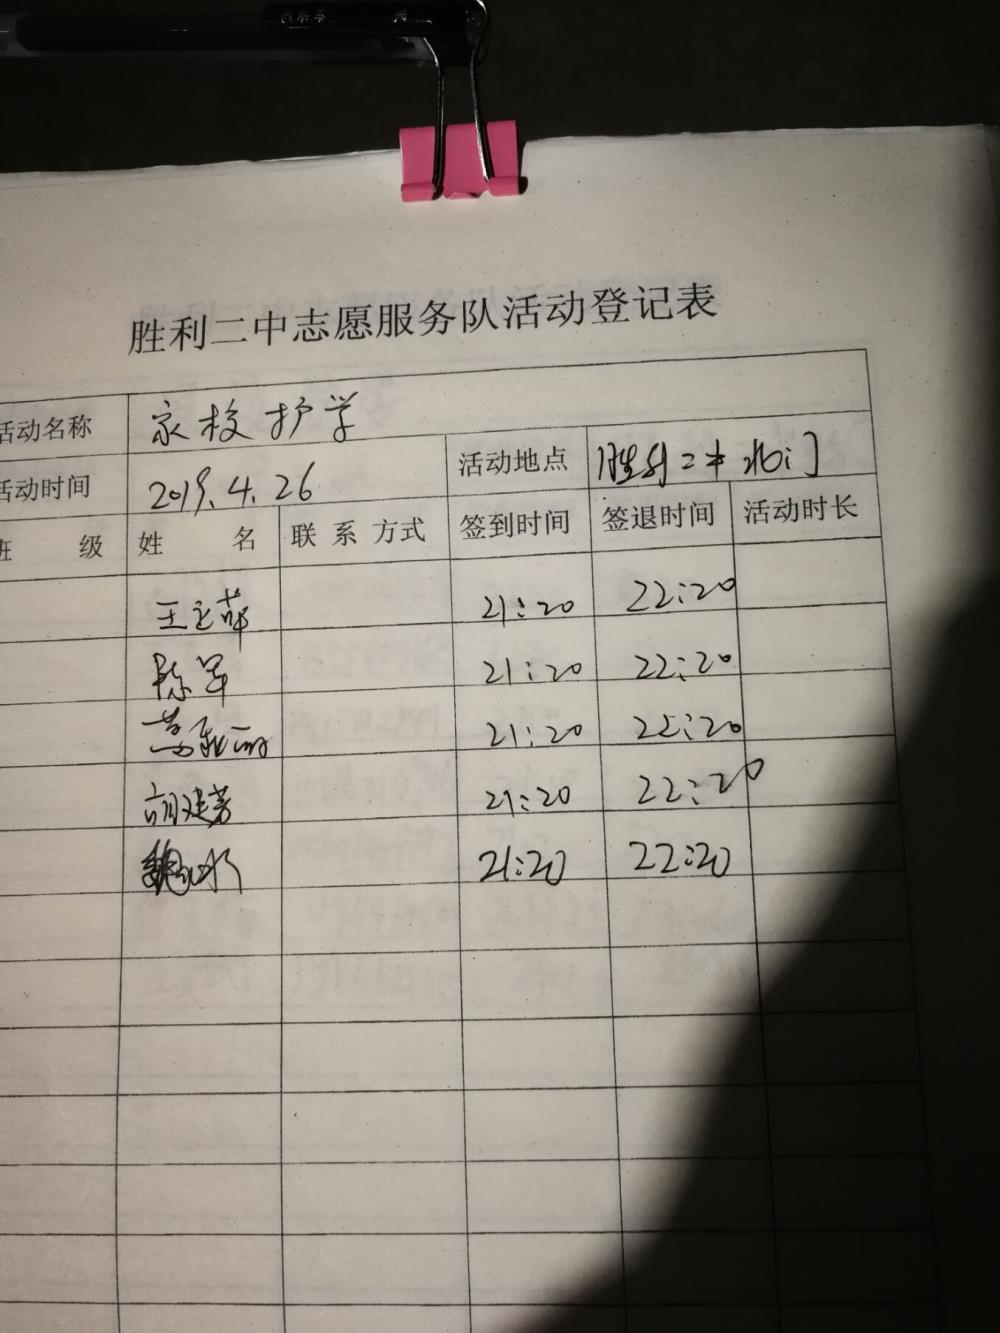 胜利二中志愿服务队活动登记表
活动名称 家校护学
活动时间 2019.4.26 活动地点 胜利二中北门
班 级 姓 名 联系方式 签到时间 签退时间 活动时长
21:20 22:20
陈军 21:20 22:20
21:20 22:20
胡建芳 21:20 22:20
21:20 22:20